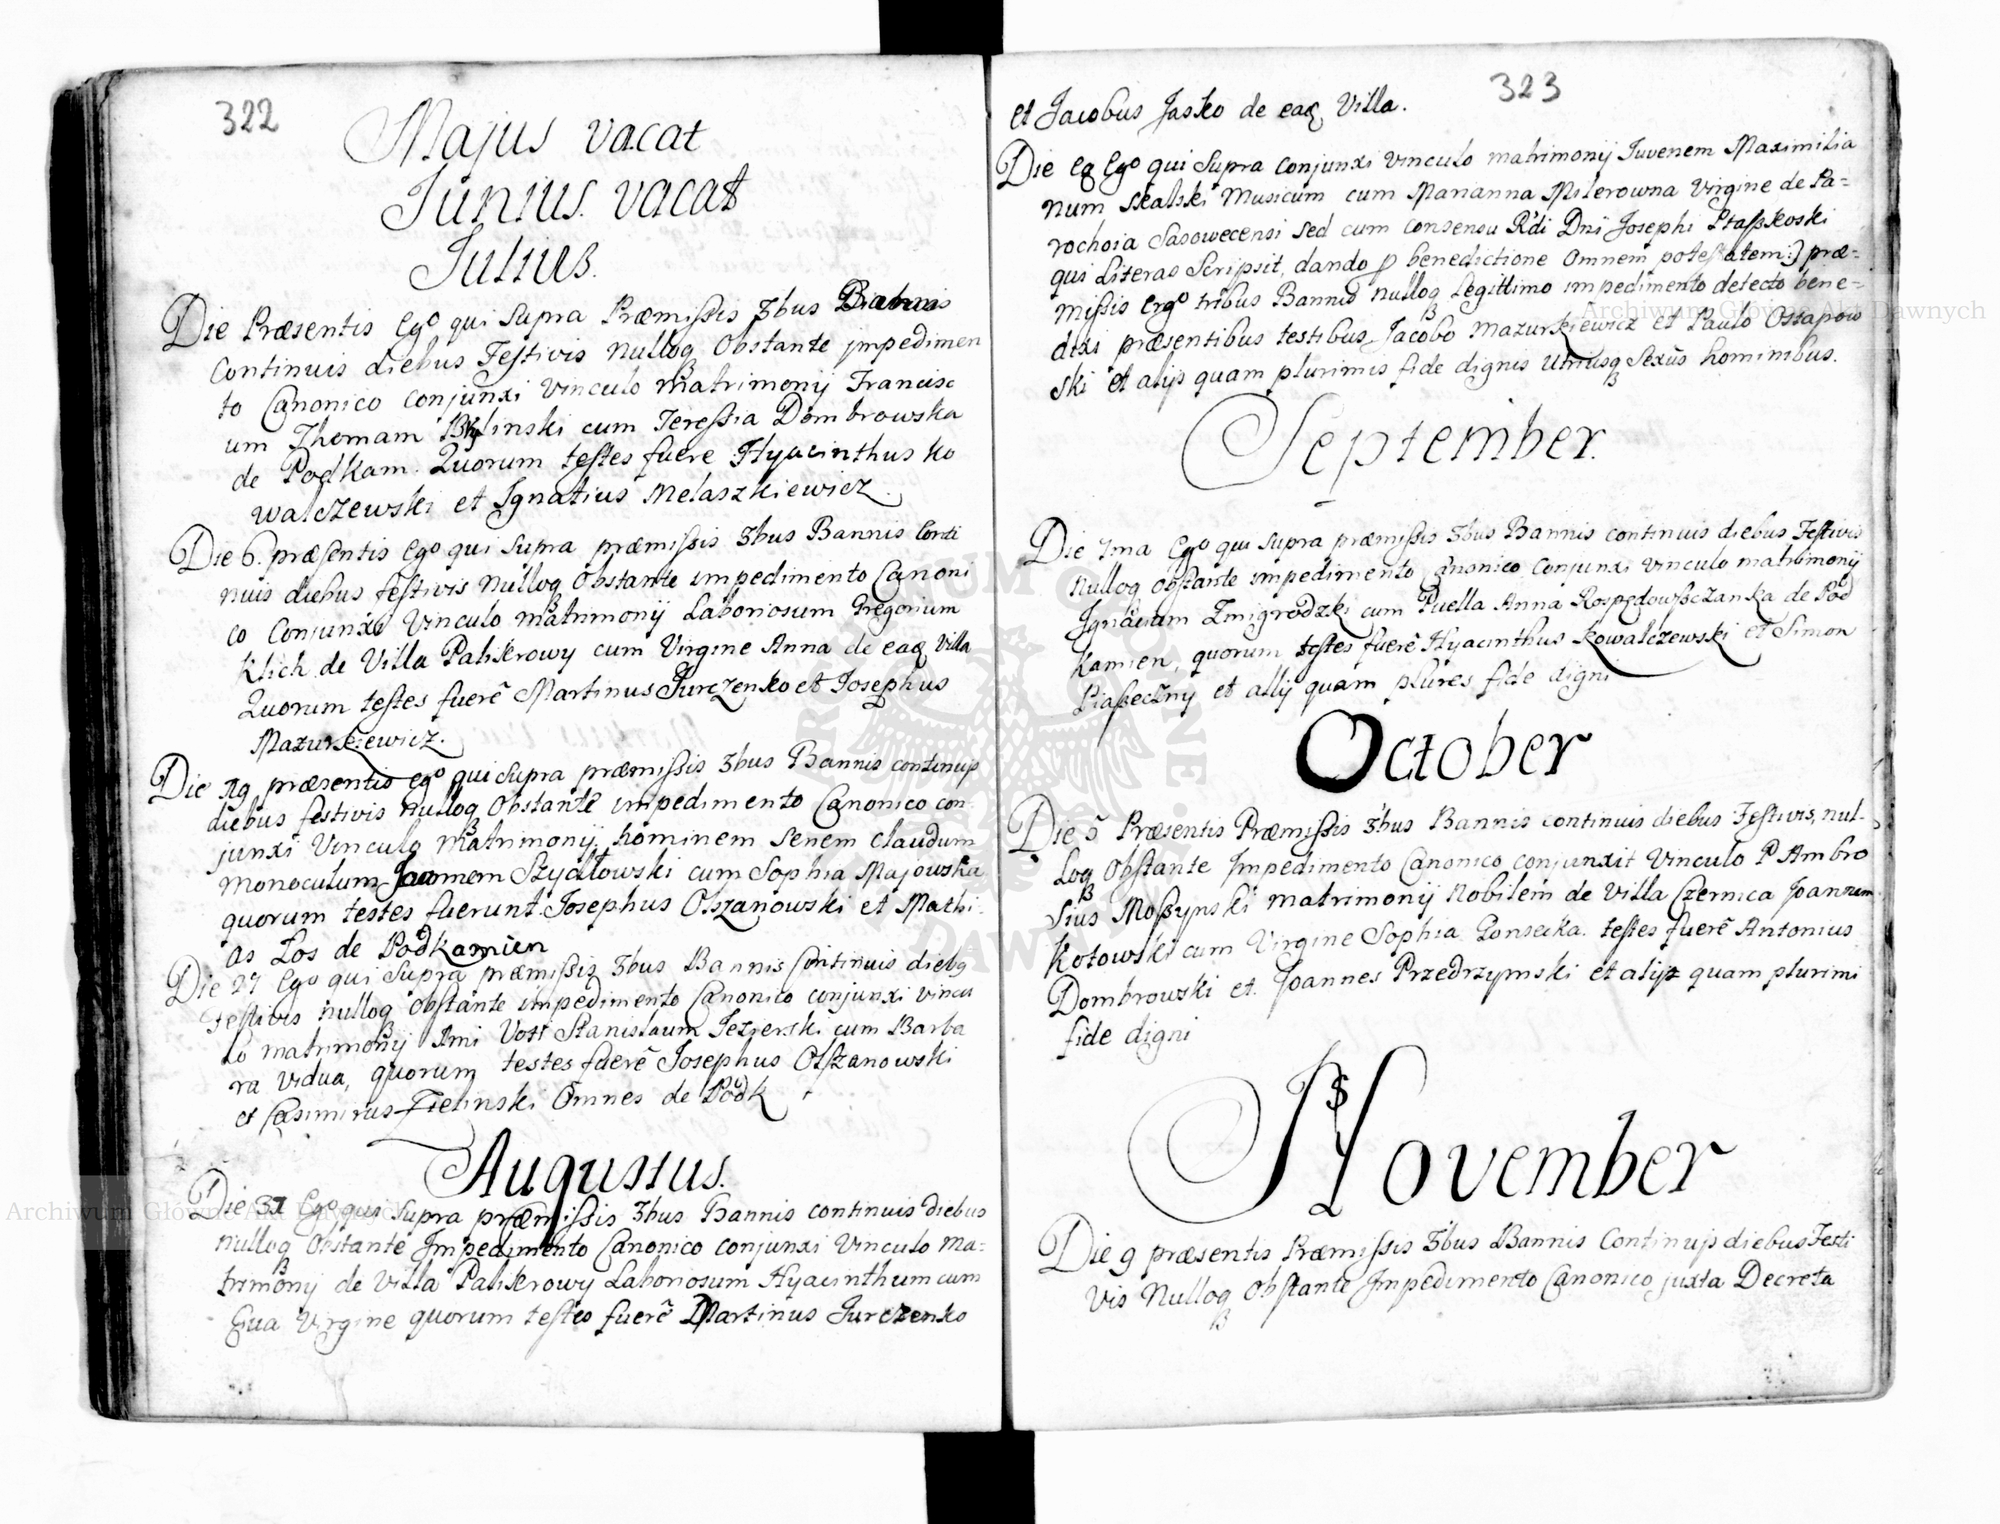 322
Majus vacat
Junius. vacat
Julius.
Die Præsentis Ego qui Supra Præmissis 3bus Bannis
Continuis diebus Festivis Nulloq Obstante jmpedimen
to Canonico conjunxi vinculo matrimonij Francisc
um Thomam linski cum Teressia Dombrowska
de Podkam. Quorum testes fuere Hyacinthus Ko
walczewski et Ignatius Melaszkiewicz.
Die 6. præsentis Ego qui Supra præmissis 3bus Bannis Conti
nuis diebus festivis Nulloq Obstante impedimento Canoni
co Conjunxi Vinculo matrimonij Laboriosum Gregorium
Klich de Villa Palikrowy cum Virgine Anna de eaq Villa
Quorum testes fuerē Martinus Jurczenko et Josephus
Mazurkiewicz.
Die 19 præsentis ego qui Supra præmissis 3bus Bannis continuis
diebus festivis nulloq Obstante impedimento Canonico con
junxi Vinculo Matrimonij hominem Senem claudum
monoculum Szydłowski cum Sophia Majowska
quorum testes fuerunt Josephus Olszanowski et Mathi
as Łos de Podkamien
Die 27 Ego qui Supra præmissis 3bus Bannis Continuis diebq
Festivis nulloq Obstante impedimento Canonico conjunxi vincu
lo matrimonij Stanislaum Jezierski cum Barba
ra vidua, quorum testes fuerē Josephus Olszanowski
et Casimirus Zielinski Omnes de Podk
Augustus.
Die 31 Ego qui Supra præmissis 3bus Bannis continuis diebus
nulloq Obstante Jmpedimento Canonico conjunxi Vinculo ma=
trimonij de Villa Palikrowy Laboriosum Hyacinthum cum
Eva Virgine quorum testes fuerē Martinus Jurczenko
323
et Jacobus Jasko de eaq Villa.
Die eq Ego qui Supra conjunxi vinculo matrimonij Juvenem Maximilia
num Skalski Musicum cum Marianna Milerowna Virgine de Pa=
rochoia Sasowecensi sed cum consensu Rdi Dni Josephi Ptasskoski
qui Literas Scripsit, dando p benedictione Omnem potestatem:) præ=
missis Ergo tribus Bannis nulloq Legittimo impedimento detecto bene=
dixi præsentibus testibus Jacobo Mazurkiewicz et Paulo Ostapow
ski et alijs quam plurimis fide dignis Utriusq Sexûs hominibus.
September.
Die 7ma Ego qui Supra præmissis 3bus Bannis continuis diebus Festivis
nulloq obstante impedimento Canonico Conjunxi vinculo matrimonij
Ignatium Zmigrodzki cum Puella Anna Rospędowszczanka de Pod
kamien, quorum testes fuerē Hyacinthus Kowalczewski et Simon
Piaseczny et alij quam plures fide digni
October
Die 5 Præsentis Præmissis 3bus Bannis continuis diebus Festivis, nul-
loq Obstante Jmpedimento Canonico conjunxit Vinculo P Ambro
sius Moszynski matrimonij Nobilem de Villa Czernica Joannem
Kotowski cum Virgine Sophia Gonsecka. testes fuerē Antonius
Dombrowski et Joannes Przedrzymski et alijs quam plurimi
fide digni
November
Die 9 præsentis Præmissis 3bus Bannis Continuis diebus Festi
vis Nulloq Obstante Jmpedimento Canonico juxta Decreta
Archiwum Główne Akt Dawnych
Archiwum Główne Akt Dawnych
ARCHIWUM GŁÓWNE AKT DAWNYCH